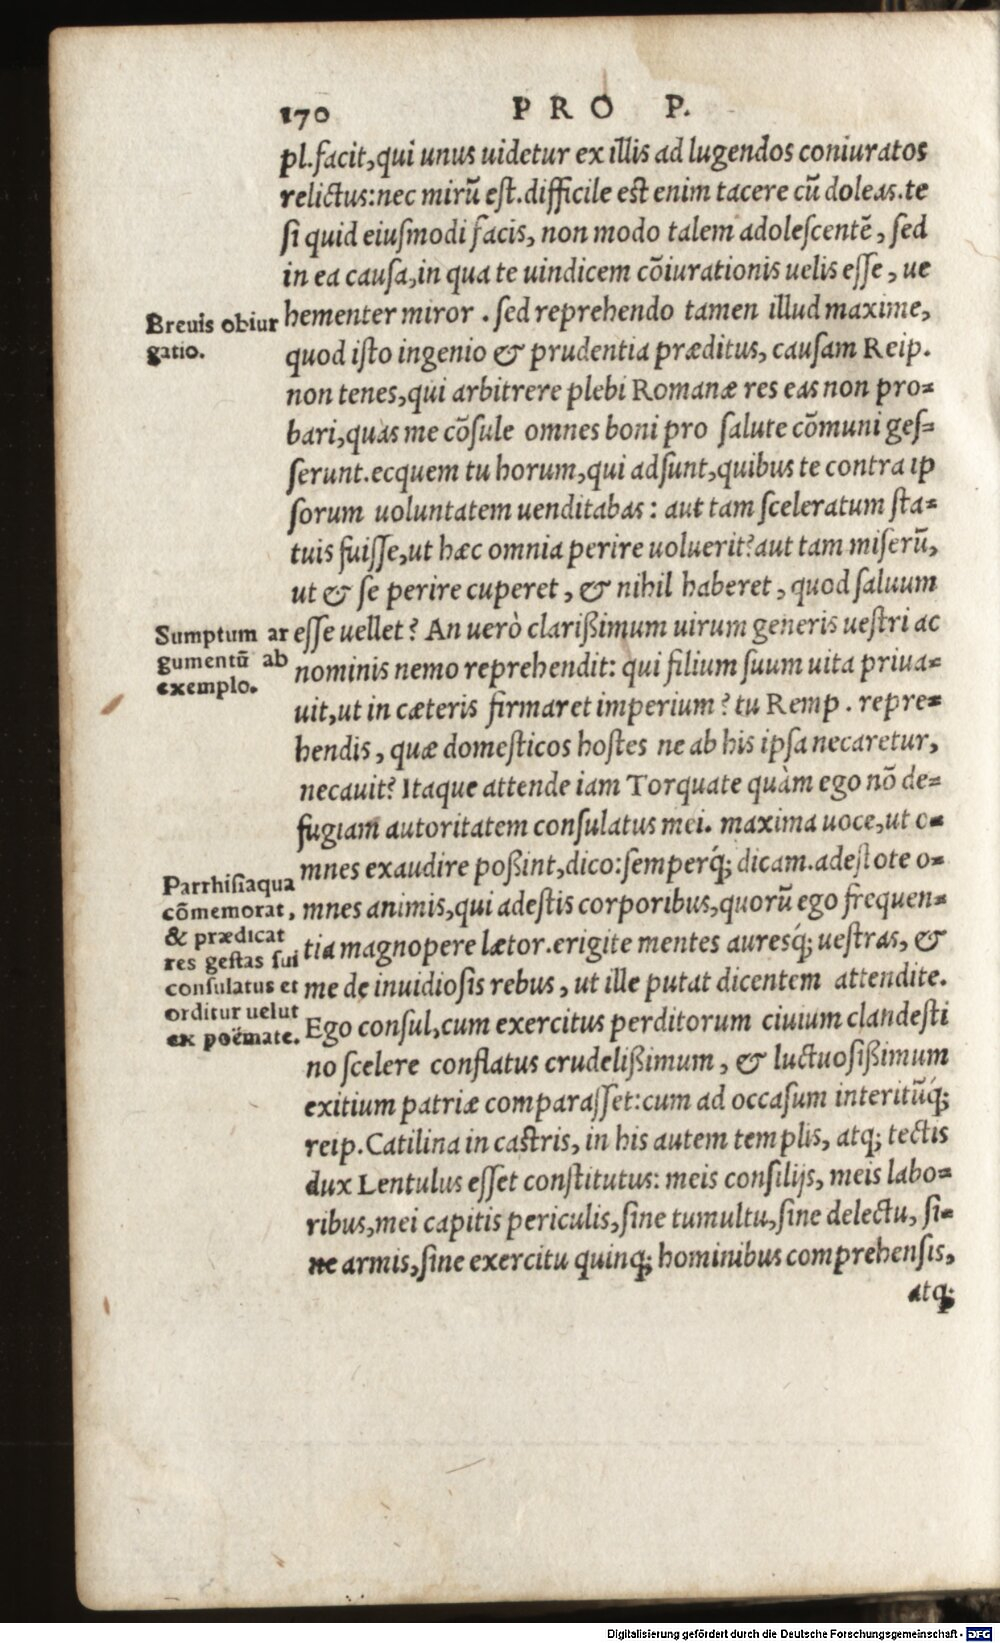 170 PRO P.
pl.facit,qui unus uidetur ex illis ad lugendos coniuratos
relictus:nec mirũ est.difficile est enim tacere cũ doleas.te
si quid eiusmodi facis, non modo talem adolescentẽ, sed
in ea causa,in qua te uindicem cõiurationis uelis esse, ue
Breuis obiur
gatio.
hementer miror . sed reprehendo tamen illud maxime,
quod isto ingenio & prudentia præditus, causam Reip.
non tenes,qui arbitrere plebi Romanæ res eas non pro=
bari,quas me cõsule omnes boni pro salute cõmuni ges=
serunt.ecquem tu horum,qui adsunt,quibus te contra ip
sorum uoluntatem uenditabas : aut tam sceleratum sta=
tuis fuisse,ut hæc omnia perire uoluerit?aut tam miserũ,
ut & se perire cuperet, & nihil haberet, quod saluum
Sumptum ar
gumentũ ab
exemplo.
esse uellet? An uerò clarißimum uirum generis uestri ac
nominis nemo reprehendit: qui filium suum uita priua=
uit,ut in cæteris firmaret imperium? tu Remp. repre=
hendis, quæ domesticos hostes ne ab his ipsa necaretur,
necauit? Itaque attende iam Torquate quàm ego nõ de=
fugiam autoritatem consulatus mei. maxima uoce,ut o=
mnes exaudire poßint,dico:semperq́; dicam.adestote o=
Parrhisiaqua
cõmemorat,
& prædicat
res gestas sui
consulatus et
orditur uelut
ex poëmate.
mnes animis,qui adestis corporibus,quorũ ego frequen=
tia magnopere lætor.erigite mentes auresq́; uestras, &
me de inuidiosis rebus, ut ille putat dicentem attendite.
Ego consul,cum exercitus perditorum ciuium clandesti
no scelere conflatus crudelißimum, & luctuosißimum
exitium patriæ comparasset:cum ad occasum interitũq́;
reip.Catilina in castris, in his autem templis, atq; tectis
dux Lentulus esset constitutus: meis consilijs, meis labo=
ribus,mei capitis periculis,sine tumultu,sine delectu, si=
ne armis,sine exercitu quinq; hominibus comprehensis,
atq;
Digitalisierung gefördert durch die Deutsche Forschungsgemeinschaft - DFG